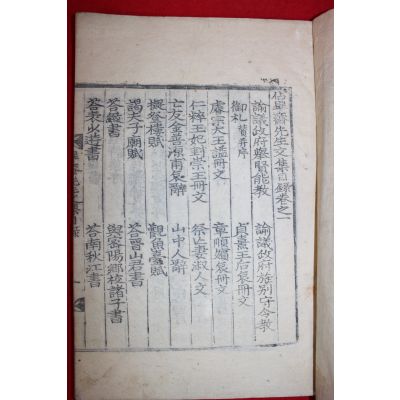 佔畢齋先生文集目錄卷之一
諭議政府舉賢能教 諭議政府旌別守令教
御札贊并序 貞熹王后哀冊文
睿宗大王諡冊文 章順嬪哀冊文
仁粹王妃封崇王冊文 祭亡妻淑人文
亡友金善源甫哀辭 山中人辭
擬登樓賦 觀魚臺賦
謁夫子廟賦 荅晉山君書
荅鑑書 與密陽鄉校諸子書
荅 書 荅南秋江書